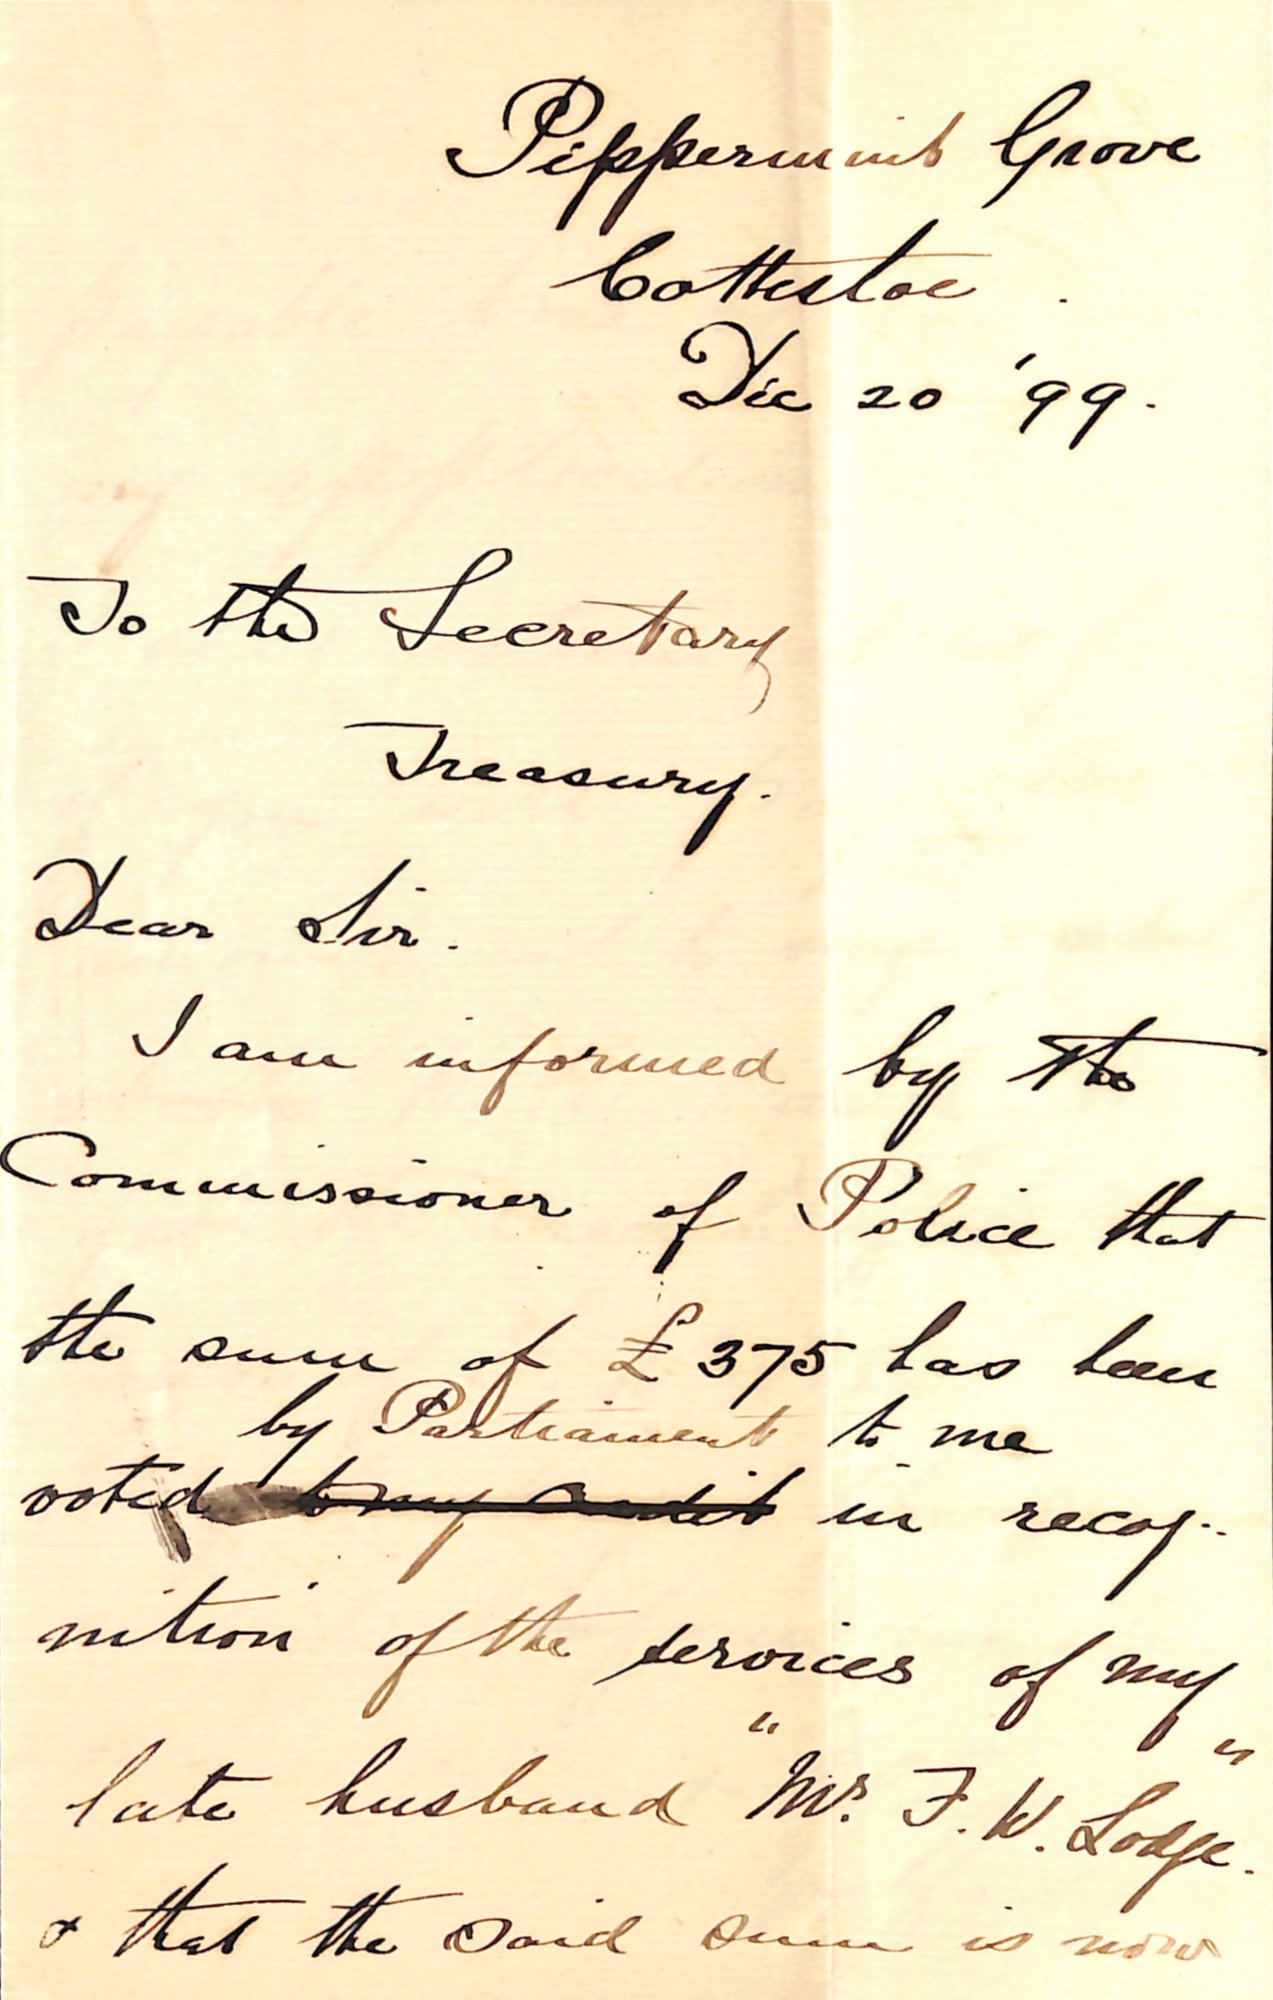 Peppermint Grove
Cottesloe.
Dec 20 '99.
To the Secretary
Treasury.
Dear Sir.
I am informed by the
Commissioner of Police that
the sum of £375 has been
by Parliament to me
voted to my credit in recog-
nition of the services of my
late husband "Mr. F. W. Lodge."
& that the said sum is now